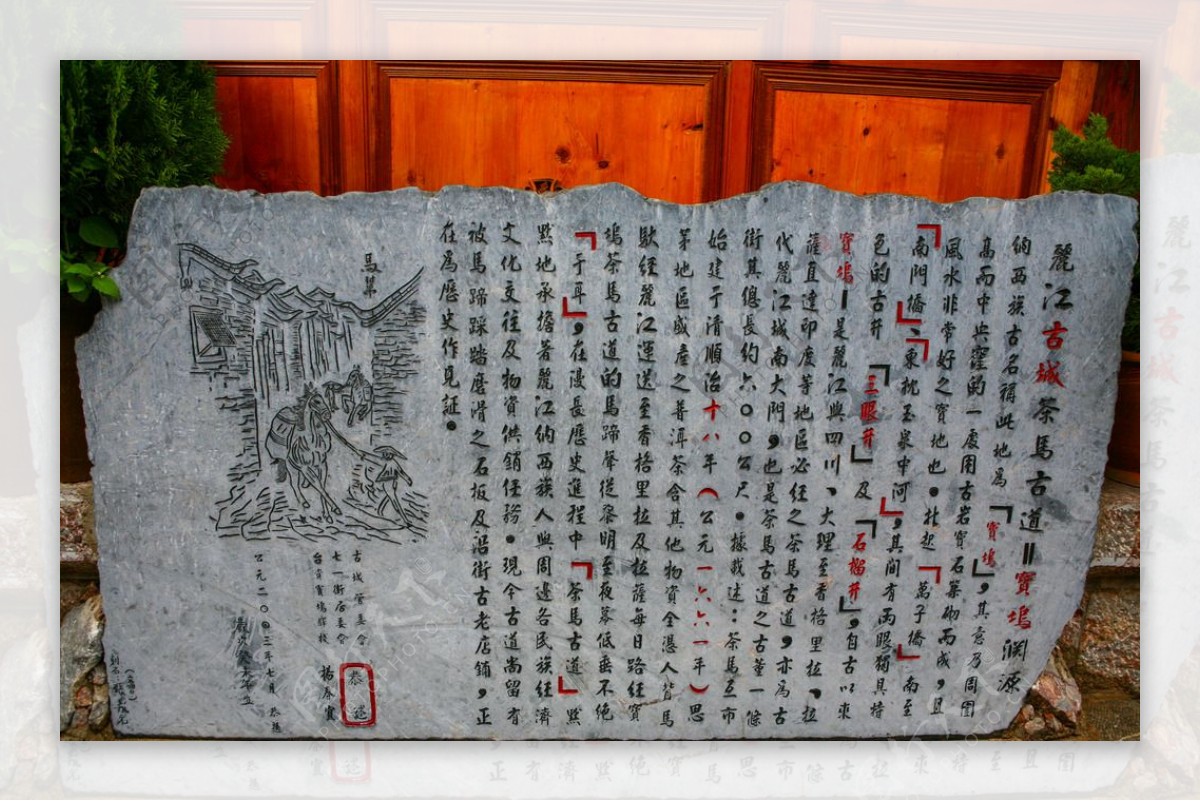 麗江古城茶馬古道=寶塢淵源
納西族古名稱此地為「寶塢」,其意乃周圍
高而中央窪的一處用古岩寶石築砌而成,且
風水非常好之寶地也。北起「萬子橋」南至
「南門橋」、東枕玉泉中河,其間有兩眼獨具特
色的古井「三眼井」及「石榴井」,自古以來
寶塢-是麗江與四川、大理至香格里拉,拉
薩直達印度等地區必經之茶馬古道,亦為古
代麗江城南大門,也是茶馬古道之古董一條
街其總長約六〇〇公尺。據載述:茶馬互市
始建于清順治十八年(公元一六六一年)思
茅地區盛產之普洱茶含其他物資全憑人背馬
馱經麗江運送至香格里拉及拉薩每日路經寶
塢茶馬古道的馬蹄聲從黎明至夜幕低垂不絕
「于耳」,在漫長歷史進程中「茶馬古道」默
默地承擔著麗江納西族人與周邊各民族經濟
文化交往及物資供銷任務。現今古道尚留有
被馬蹄踩踏磨滑之石板及沿街古老店鋪,正
在為歷史作見証。
馬幫
古城管委會
七一街居委會
台資寶塢賓棧 楊春寶
恭造
公元二〇〇三年七月